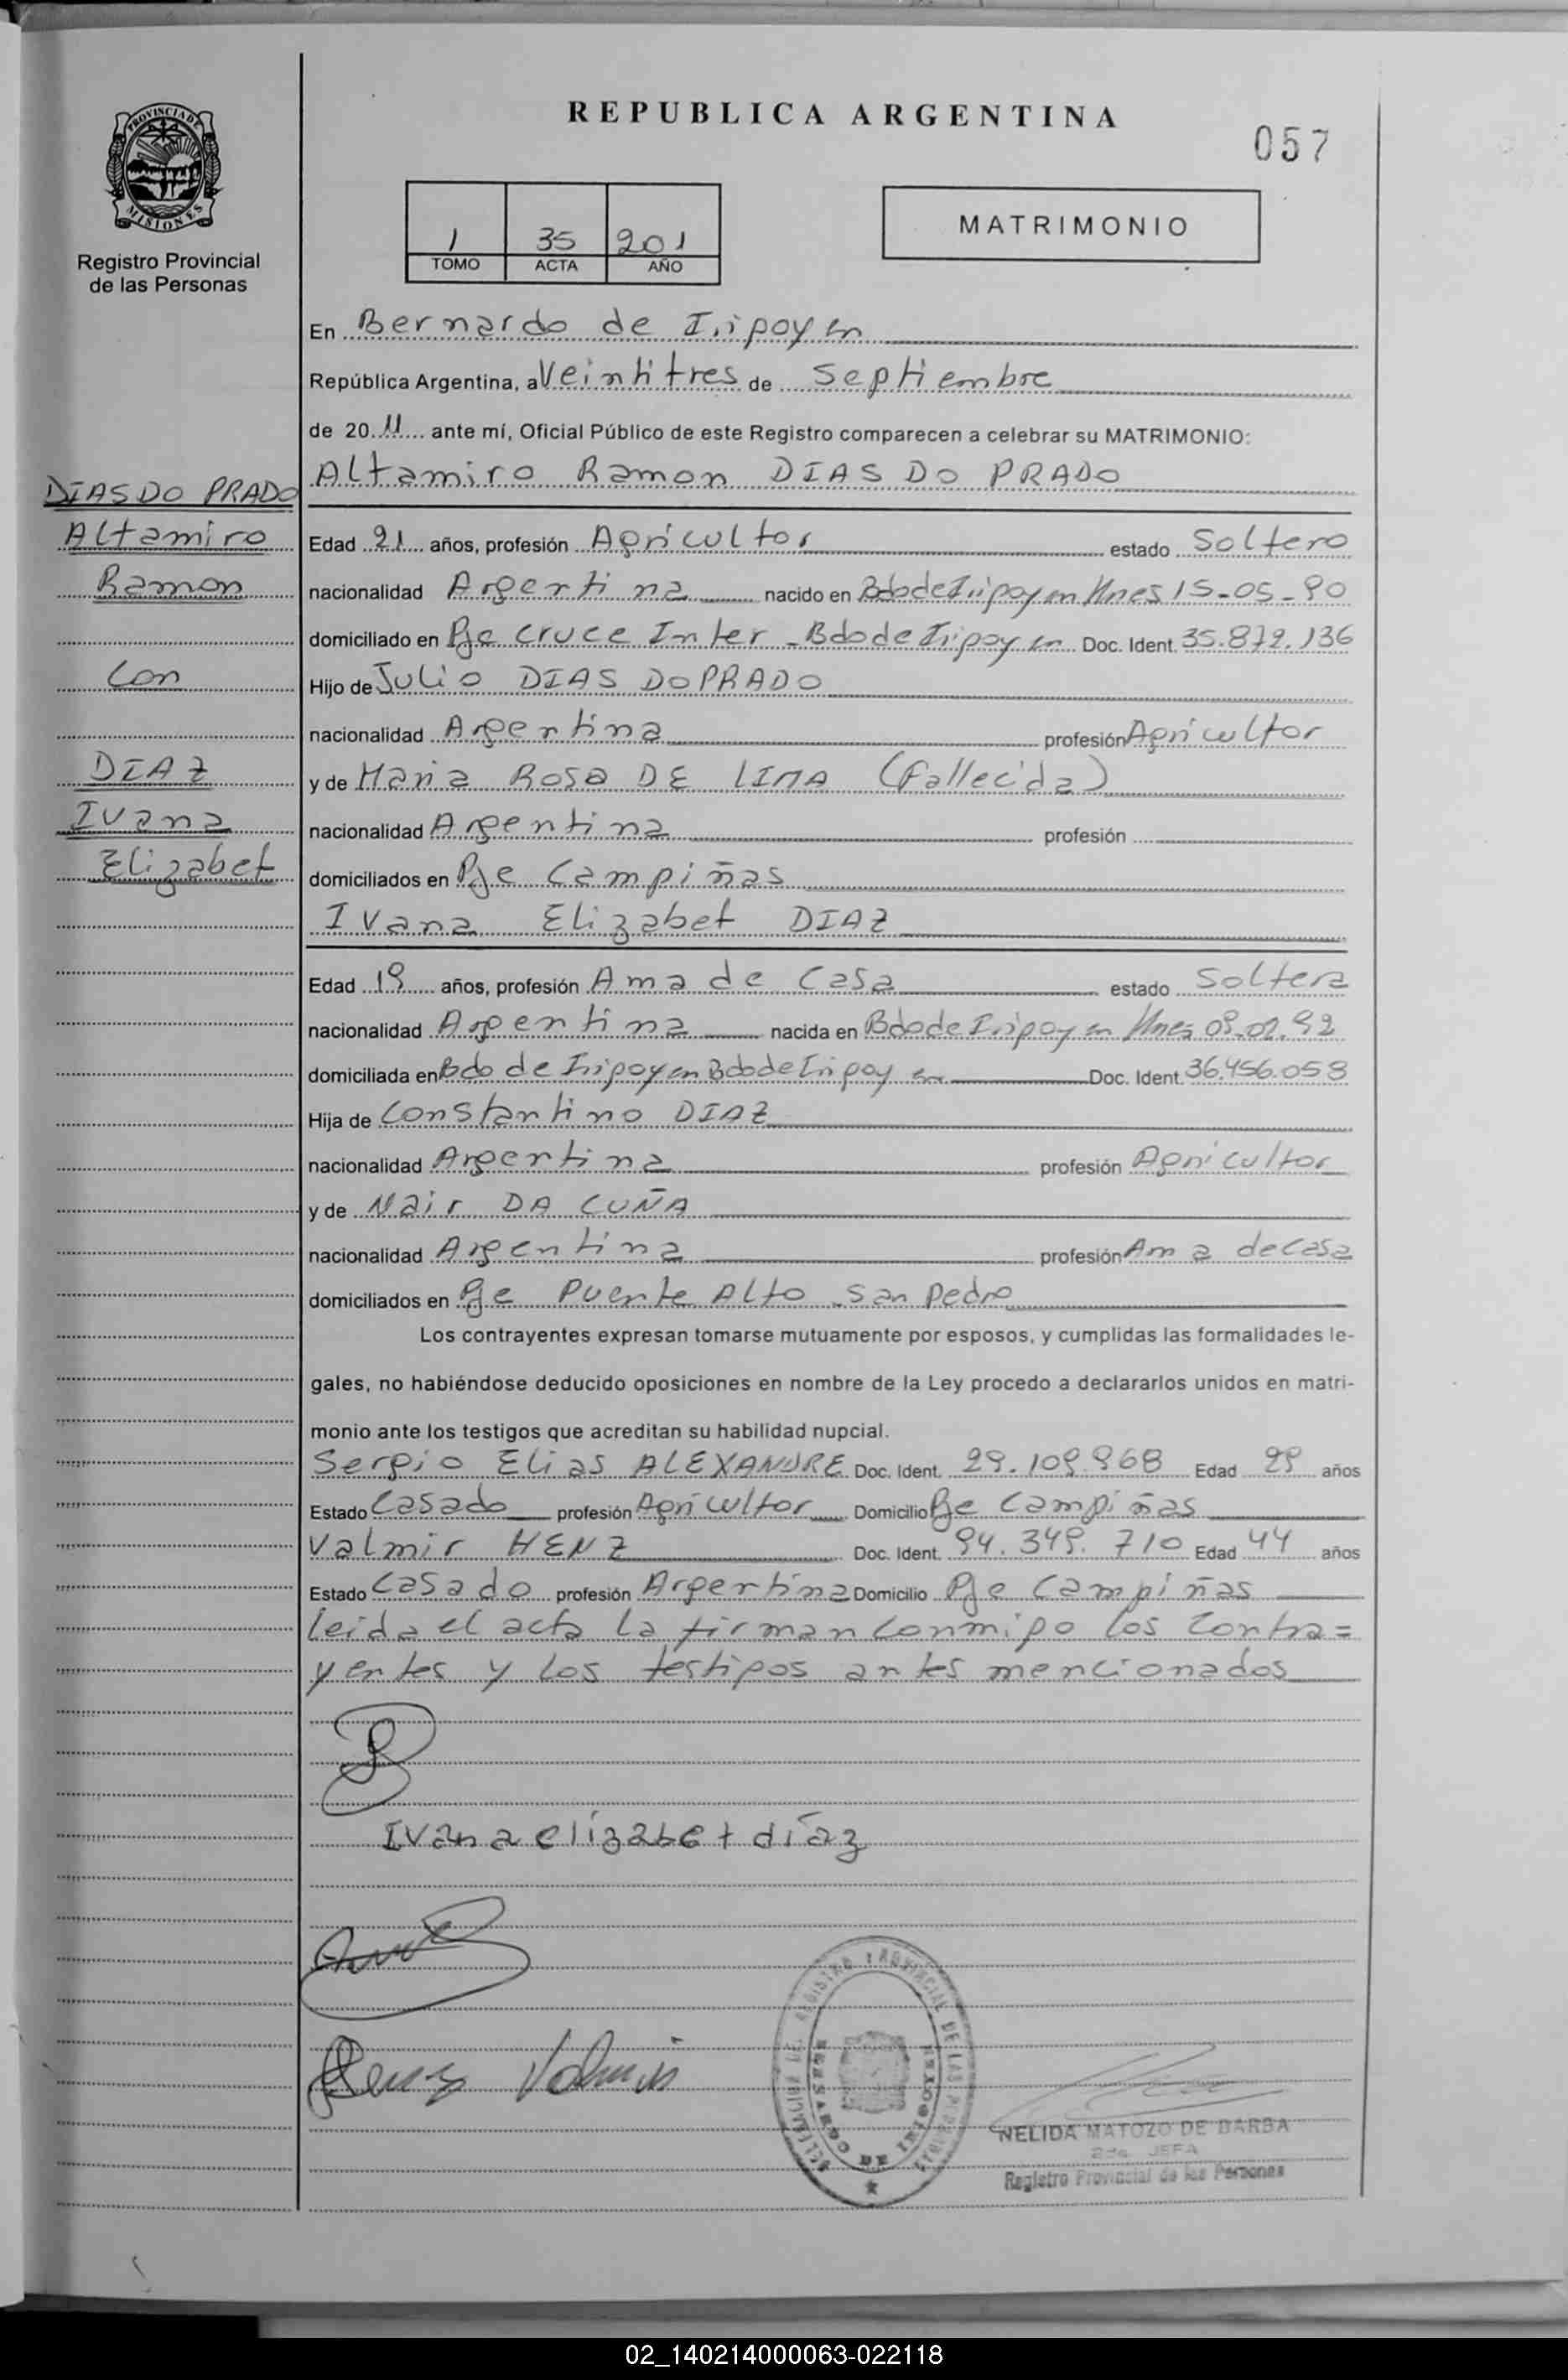 PROVINCIA DE
MISIONES
Registro Provincial
de las Personas
REPUBLICA ARGENTINA
057
1 35 201
TOMO ACTA AÑO
MATRIMONIO
En Bernardo de Iripoyen
República Argentina, a Veintitres de Septiembre
de 20 11 ante mí, Oficial Público de este Registro comparecen a celebrar su MATRIMONIO:
Altamiro Ramon DIAS DO PRADO
DIAS DO PRADO
Altamiro
Ramon
Con
DIAZ
Ivana
Elizabet
Edad 21 años, profesión Agricultor estado Soltero
nacionalidad Argentina nacido en Bdo de Iripoyen Mnes 15-05-90
domiciliado en Pje Cruce Inter - Bdo de Iripoyen Doc. Ident. 35.872.136
Hijo de Julio DIAS DO PRADO
nacionalidad Argentina profesión Agricultor
y de Maria Rosa DE LIMA (Fallecida)
nacionalidad Argentina profesión
domiciliados en Pje Campiñas
Ivana Elizabet DIAZ
Edad 19 años, profesión Ama de Casa estado Soltera
nacionalidad Argentina nacida en Bdo de Iripoyen Mnes
domiciliada en Bdo de Iripoyen Bdo de Iripoyen Doc. Ident. 36.456.058
Hija de Constantino DIAZ
nacionalidad Argentina profesión Agricultor
y de Nair DA CUÑA
nacionalidad Argentina profesión Ama de Casa
domiciliados en Pje Puente Alto - San Pedro
Los contrayentes expresan tomarse mutuamente por esposos, y cumplidas las formalidades le-
gales, no habiéndose deducido oposiciones en nombre de la Ley procedo a declararlos unidos en matri-
monio ante los testigos que acreditan su habilidad nupcial.
Sergio Elias ALEXANDRE Doc. Ident. 29.109.968 Edad 29 años
Estado Casado profesión Agricultor Domicilio Pje Campiñas
Valmir HENZ Doc. Ident. 94.349.710 Edad 44 años
Estado Casado profesión Argentina Domicilio Pje Campiñas
leida el acta la firman conmigo los contra=
yentes y los testigos antes mencionados
Ivana elízabet díaz
Henz Valmir
REGISTRO PROVINCIAL DE LAS PERSONAS
BERNARDO DE IRIGOYEN
NELIDA MATOZO DE BARBA
2da JEFA
Registro Provincial de las Personas
02_140214000063-022118